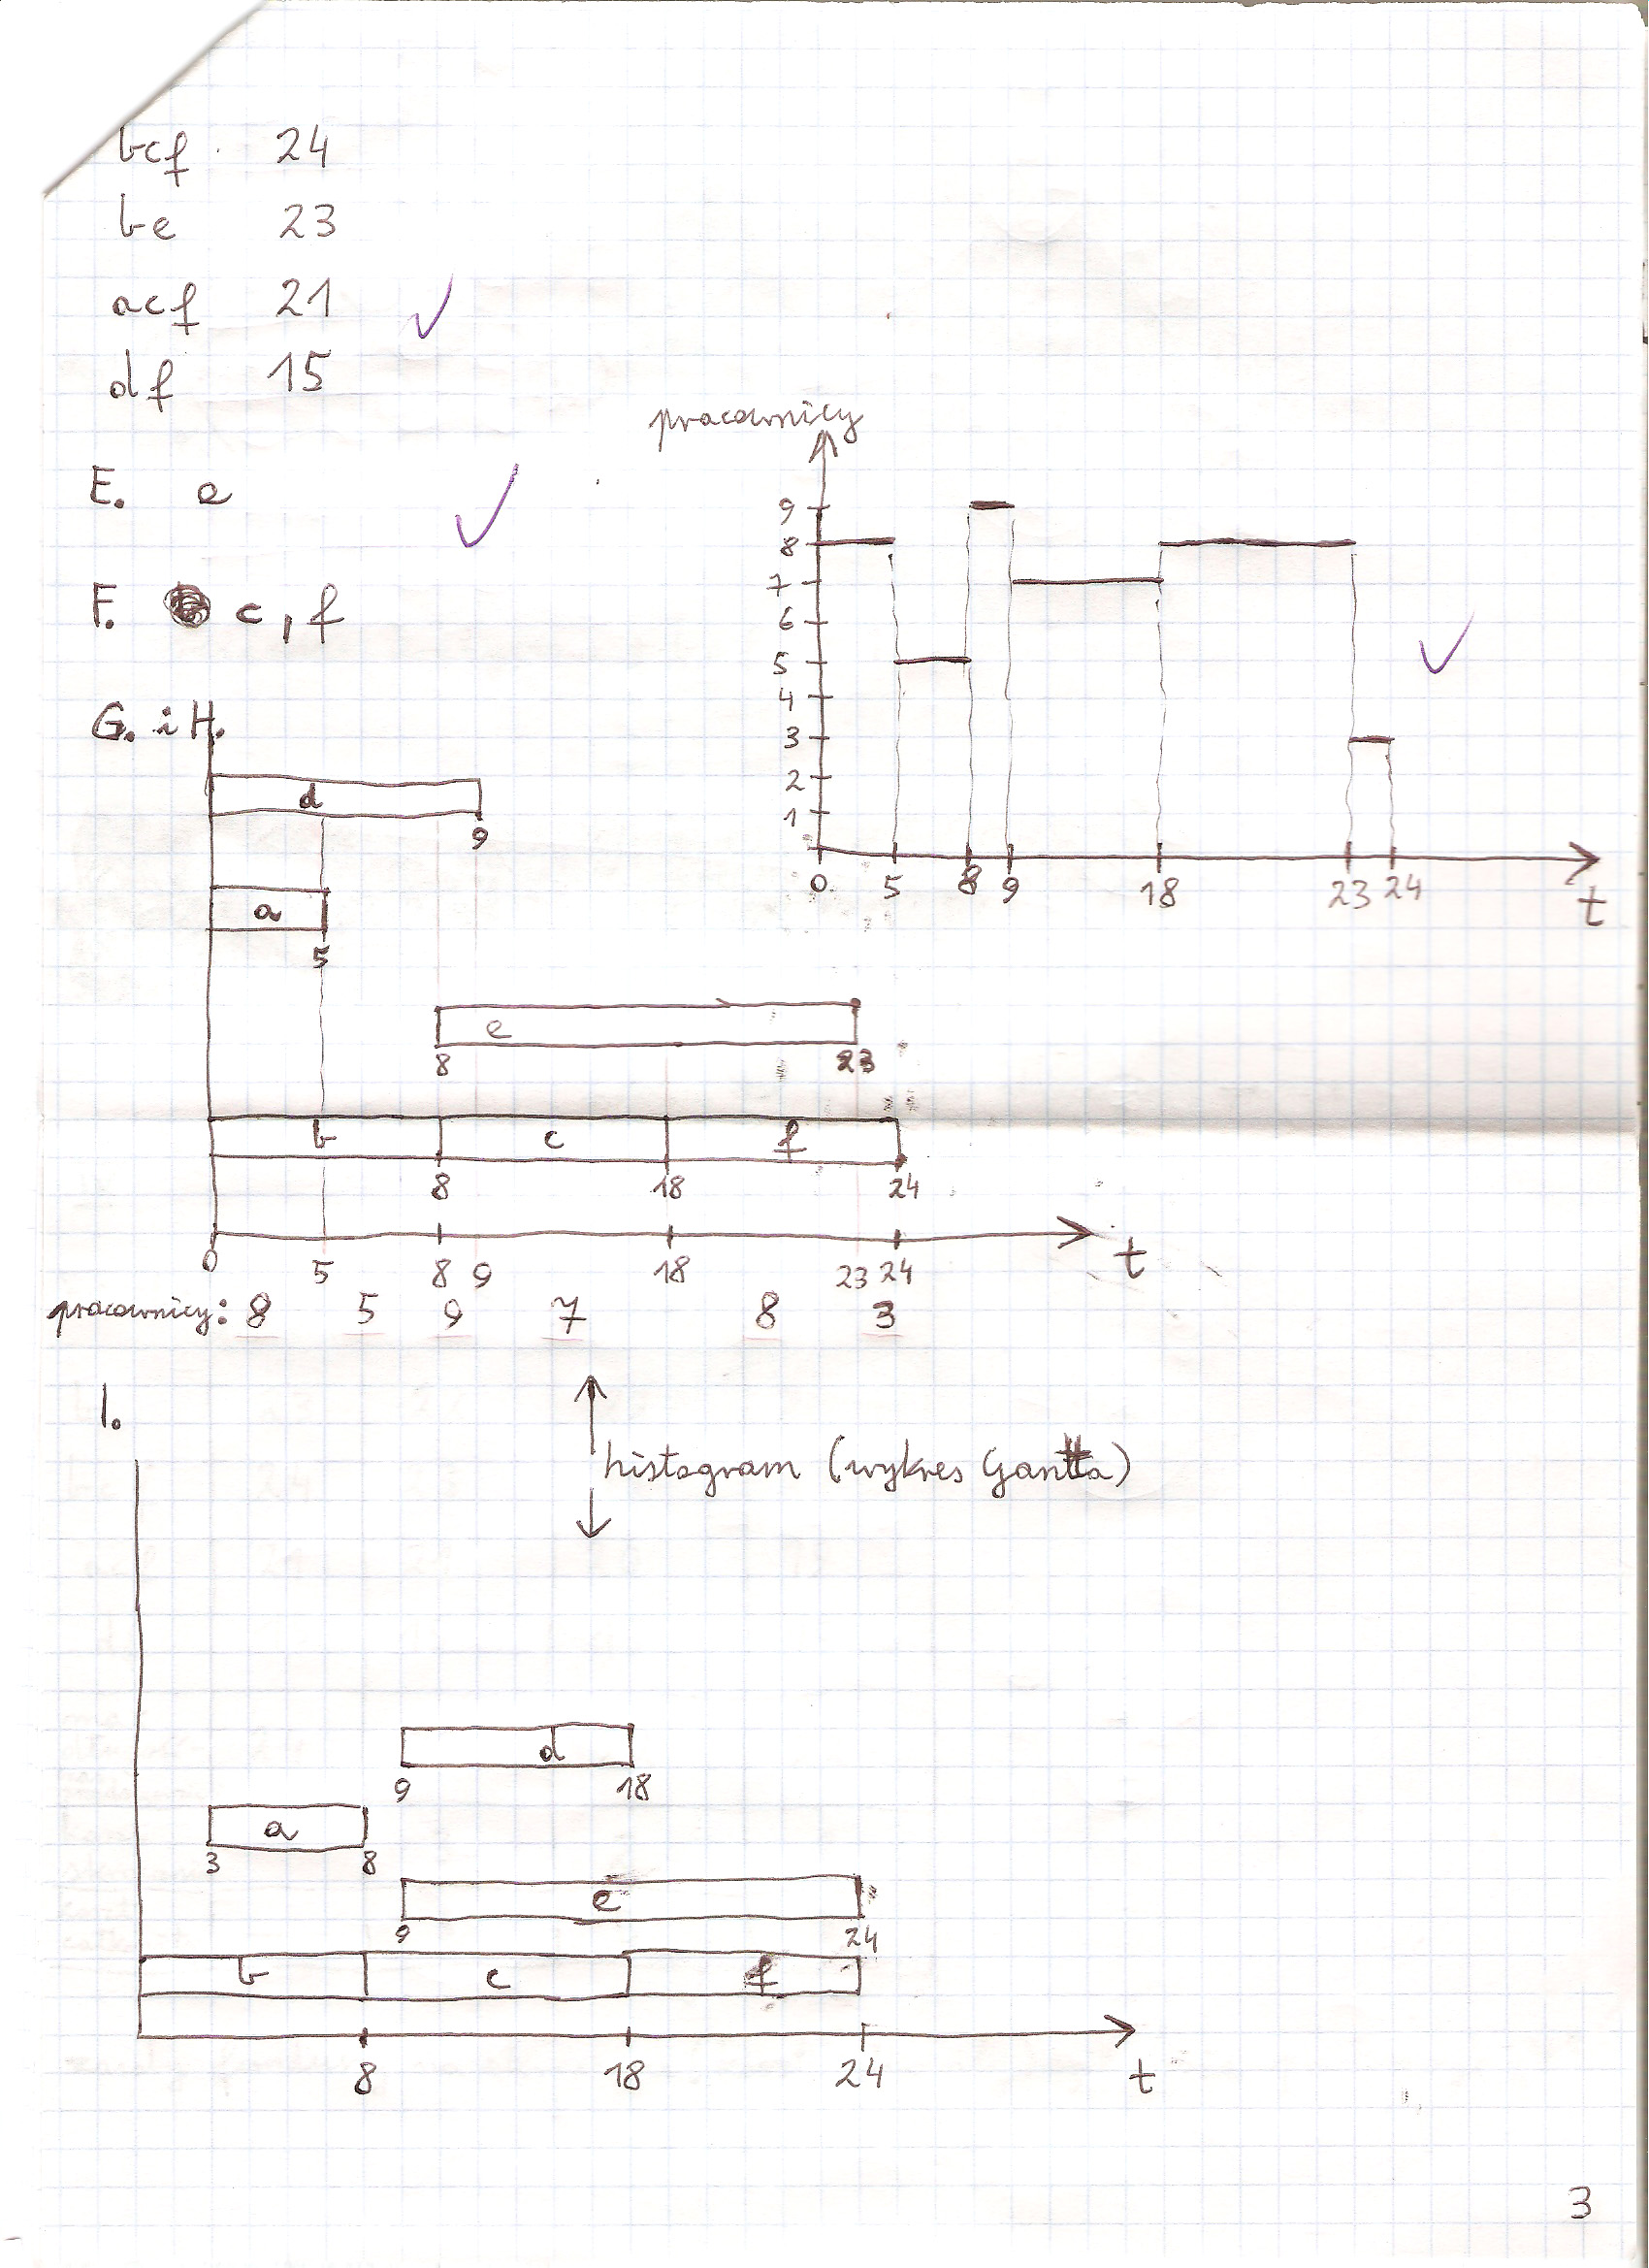 bcf 24
be 23
acf 21
df 15
E. e
F. c, f
pracownicy
9
8
7
6
5
4
3
2
1
0 5 8 9 18 23 24
t
G. i H.
d
9
a
5
e
8 23
b c f
8 18 24
0 5 8 9 18 23 24 t
pracownicy: 8 5 9 7 8 3
I.
histogram (wykres Gantta)
d
9 18
a
3 8
e
9 24
b c f
8 18 24 t
3